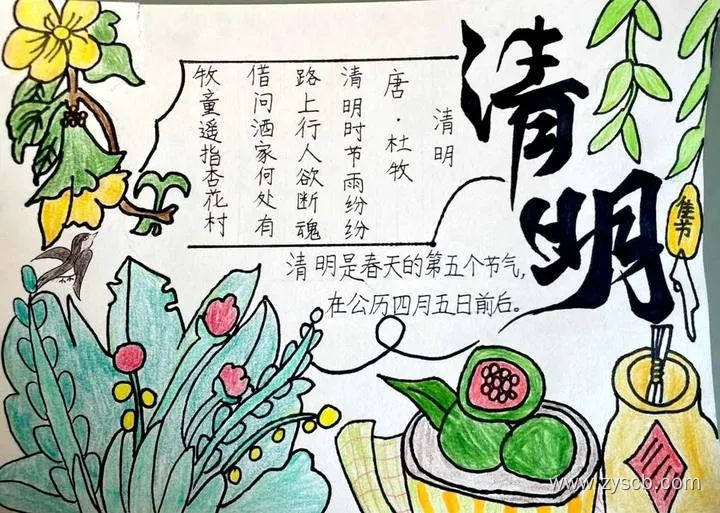 清明
佳节
清明
唐·杜牧
清明时节雨纷纷
路上行人欲断魂
借问酒家何处有
牧童遥指杏花村
清明是春天的第五个节气，
在公历四月五日前后。
www.zyscb.com